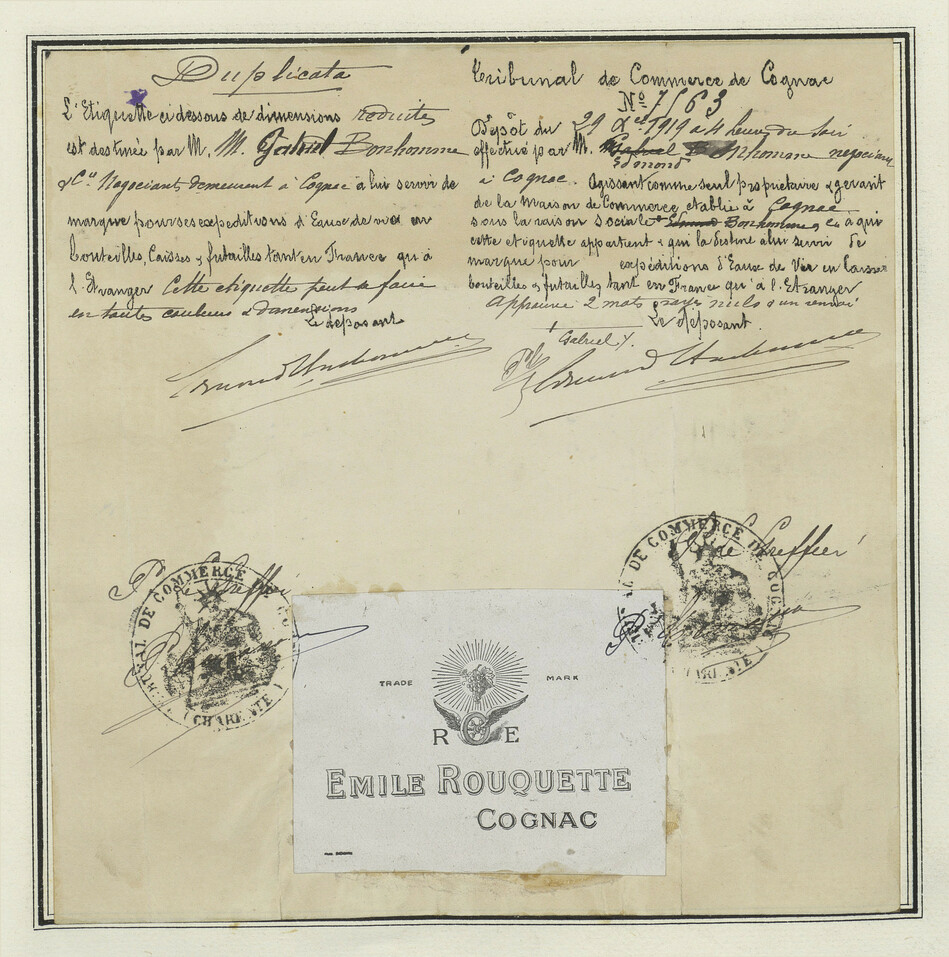 Duplicata
L'Etiquette ci dessous de dimensions reduites
est destinée par M. M. Gabriel Bonhomme
& Cie Negociant demeurant à Cognac à lui servir de
marque pour ses expeditions d'Eaux de vie en
bouteilles, Caisses & futailles tant en France qu'à
l'Etranger Cette etiquette peut se faire
en toutes couleurs & dimensions
Le déposant
Tribunal de Commerce de Cognac
No 7563
Dépôt du 29 1919 à 4 heures du soir
effectué par M. Gabriel Bonhomme negociant
Edmond
à Cognac. Agissant comme seul propriétaire & gerant
de la Maison de Commerce etablie à Cognac
sous la raison sociale Bonhomme & Cie à qui
cette etiquette appartient & qui la destine a lui servir de
marque pour expéditions d'Eaux de Vie en caisses
bouteilles & futailles tant en France qu'à l'Etranger
Approuvé 2 mots rayés nuls & un renvoi
Le déposant.
Gabriel
Edmond
Le Greffier
TRIBUNAL DE COMMERCE DE COGNAC
(CHARENTE)
Le Greffier
TRIBUNAL DE COMMERCE DE COGNAC
(CHARENTE)
TRADE MARK
R E
EMILE ROUQUETTE
COGNAC